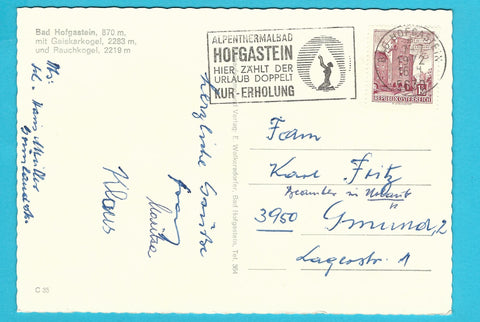 Bad Hofgastein, 870 m,
mit Gaiskarkogel, 2283 m,
und Rauchkogel, 2219 m
ALPENTHERMALBAD
HOFGASTEIN
HIER ZÄHLT DER
URLAUB DOPPELT
KUR-ERHOLUNG
HOFGASTEIN
REPUBLIK ÖSTERREICH
Herzliche Grüße
Klaus
Hans Müller
Verlag: E. Wolkersdorfer, Bad Hofgastein, Tel. 364
Fam
Karl Fritz
Beamter in
3950 Gmünd, 2
Lagerstr. 1
C 35